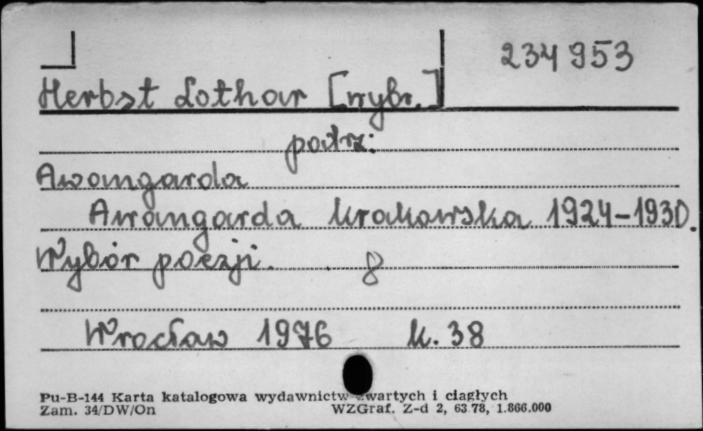 234953
Herbst Lothar [wybr.]
patrz:
Awangarda
Awangarda Krakowska 1924-1930.
Wybór poezji. 8
Wrocław 1976 k. 38
Pu-B-144 Karta katalogowa wydawnictw zwartych i ciągłych
Zam. 34/DW/On WZGraf. Z-d 2, 63 78, 1.866.000